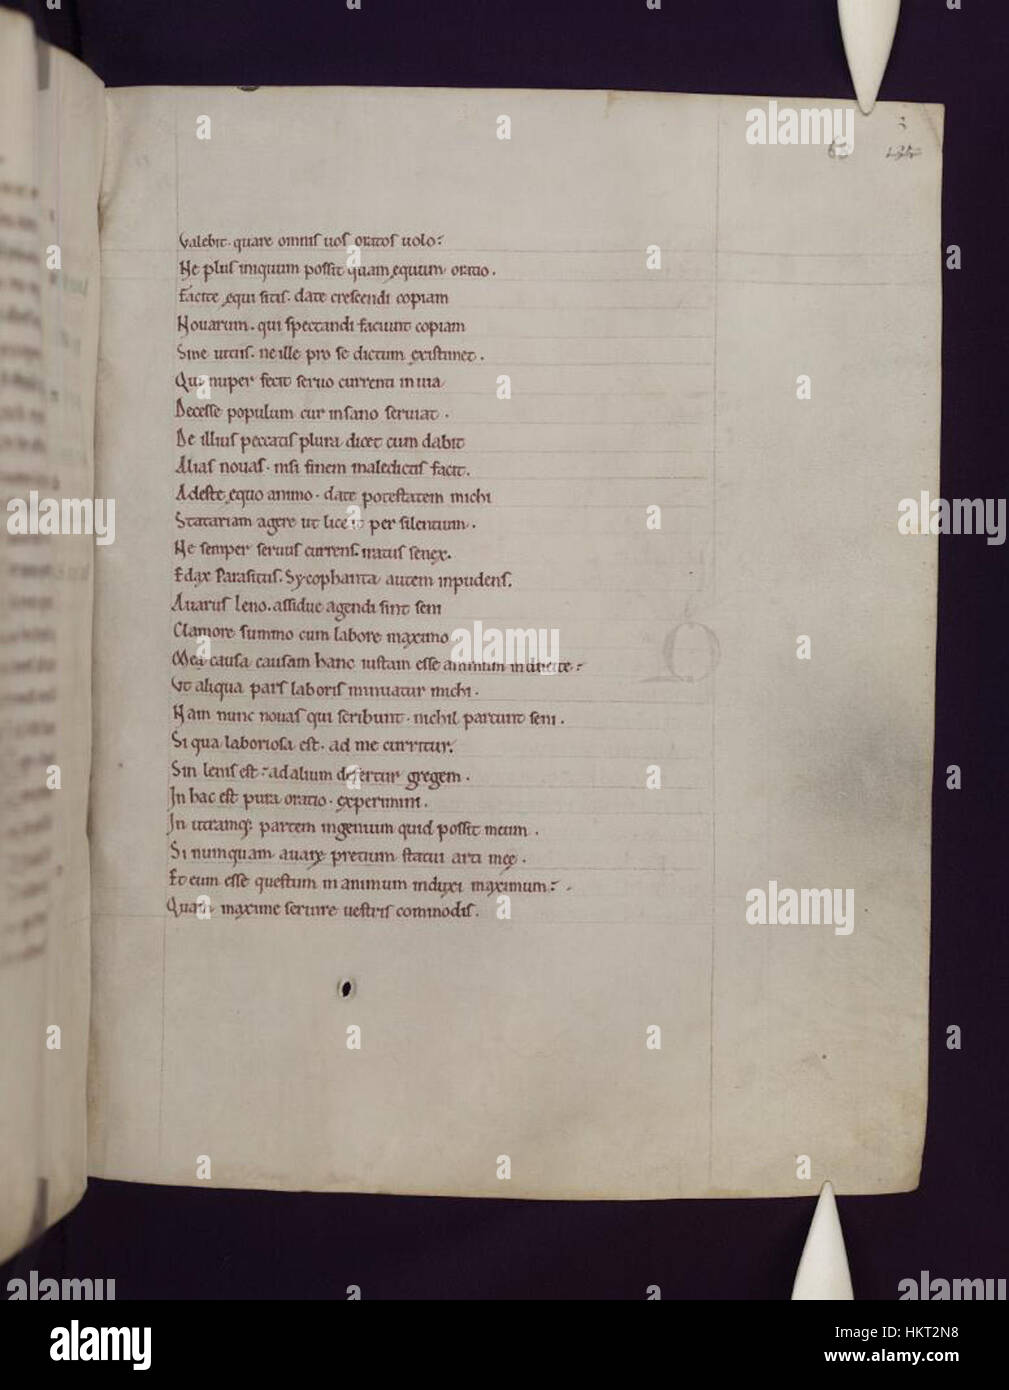 63
Valebit. quare omnis uos oratos uolo:
Ne plus iniquum possit quam ęquum oratio.
Facite ęqui sitis. date crescendi copiam
Nouarum. qui spectandi faciunt copiam
Sine uitiis. ne ille pro se dictum existimet.
Qui nuper fecit seruo currenti in uia
Decesse populum cur insano seruiat.
De illius peccatis plura dicet cum dabit
Alias nouas. nisi finem maledictis facit.
Adeste ęquo animo. date potestatem michi
Statariam agere ut liceat per silentium.
Ne semper seruus currens. iratus senex.
Edax Parasitus. Sycophanta autem inpudens.
Auarus leno. assidue agendi sint seni
Clamore summo cum labore maximo
Mea causa causam hanc iustam esse animum inducite:
Ut aliqua pars laboris minuatur michi.
Nam nunc nouas qui scribunt. nichil parcunt seni.
Si qua laboriosa est. ad me curritur.
Sin lenis est: ad alium defertur gregem.
In hac est pura oratio. experimini.
In utramq; partem ingenium quid possit meum.
Si numquam auarę pretium statui arti meę.
Et eum esse questum in animum induxi maximum:.
Quam maxime seruire uestris commodis.
a
alamy
alamy
Image ID: HKT2N8
www.alamy.com